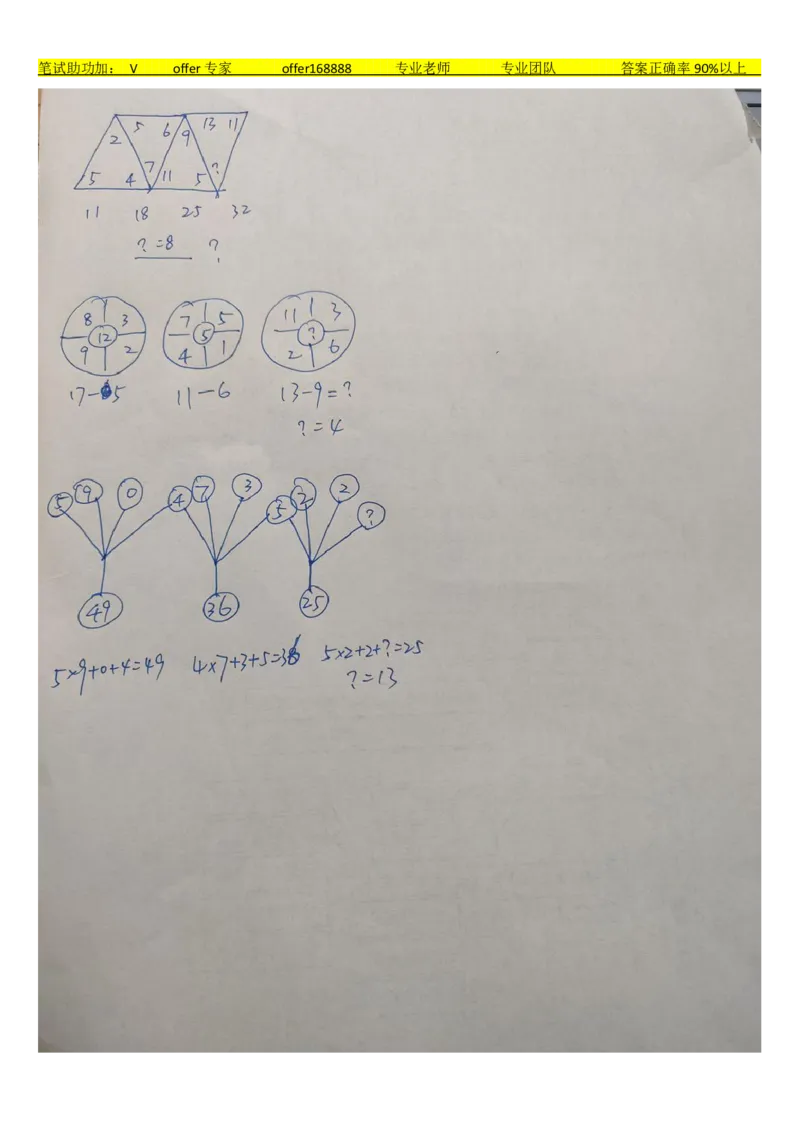 笔试助功加： V offer 专家 offer168888 专业老师 专业团队 答案正确率 90%以上
5 6 13 11
2 9
7 ?
5 4 11 5
11 18 25 32
? =8 ?
8 3 7 5 11 3
12 5 ?
9 2 4 1 2 6
17-5 11-6 13-9=?
?=4
5 9 0 4 7 3 5 2 2 ?
49 36 25
5×9+0+4=49 4×7+3+5=36 5×2+2+?=25
?=13